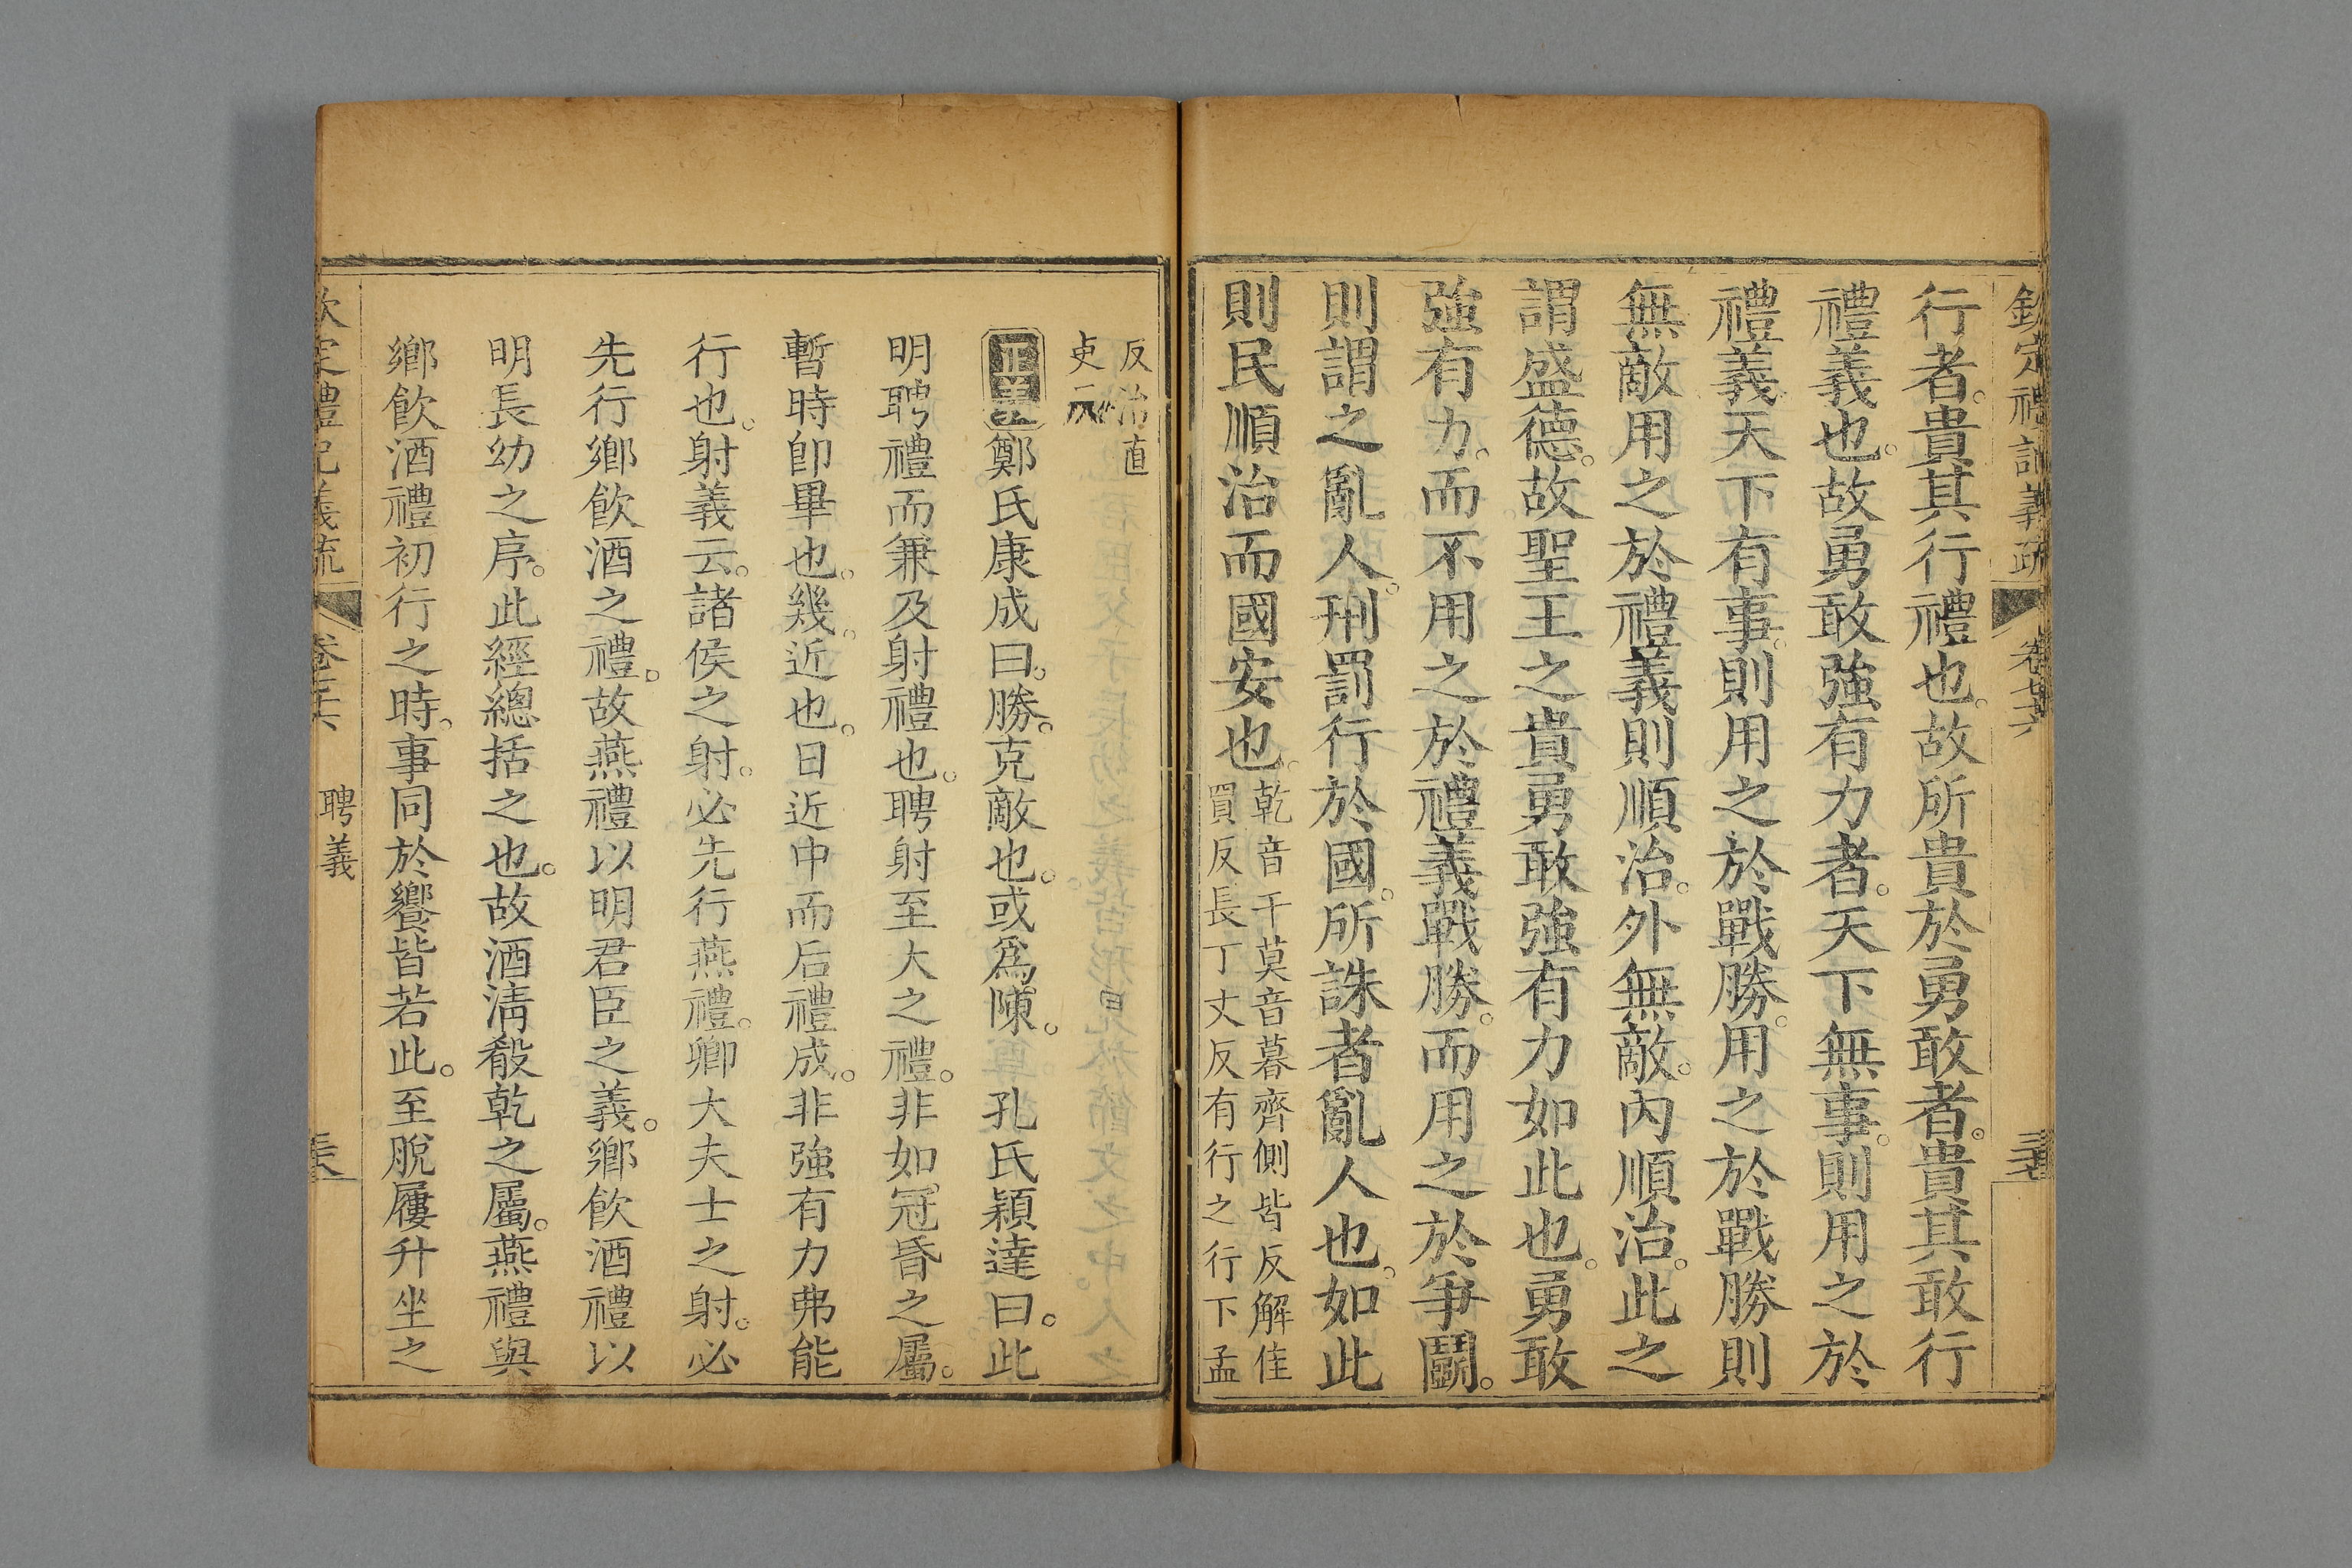 欽定禮記義疏 卷七十六
行者。貴其行禮也。故所貴於勇敢者。貴其敢行
禮義也。故勇敢強有力者。天下無事。則用之於
禮義天下有事。則用之於戰勝。用之於戰勝則
無敵用之於禮義則順治。外無敵。內順治。此之
謂盛德。故聖王之貴勇敢強有力如此也。勇敢
強有力。而不用之於禮義戰勝。而用之於爭鬭。
則謂之亂人。刑罰行於國。所誅者亂人也。如此
則民順治而國安也。乾音干莫音暮齊側皆反解佳
買反長丁丈反有行之行下孟
反治直
吏反
正義鄭氏康成曰。勝。克敵也。或爲陳。 孔氏穎達曰。此
明聘禮而兼及射禮也。聘射至大之禮。非如冠昏之屬。
暫時卽畢也。幾。近也。日近中而后禮成。非強有力弗能
行也。射義云。諸侯之射。必先行燕禮。卿大夫士之射。必
先行鄉飲酒之禮。故燕禮以明君臣之義。鄉飲酒禮以
明長幼之序。此經總括之也。故酒淸殽乾之屬。燕禮與
鄉飲酒禮初行之時。事同於饗皆若此。至脫屨升坐之
欽定禮記義疏 卷七十六 聘義